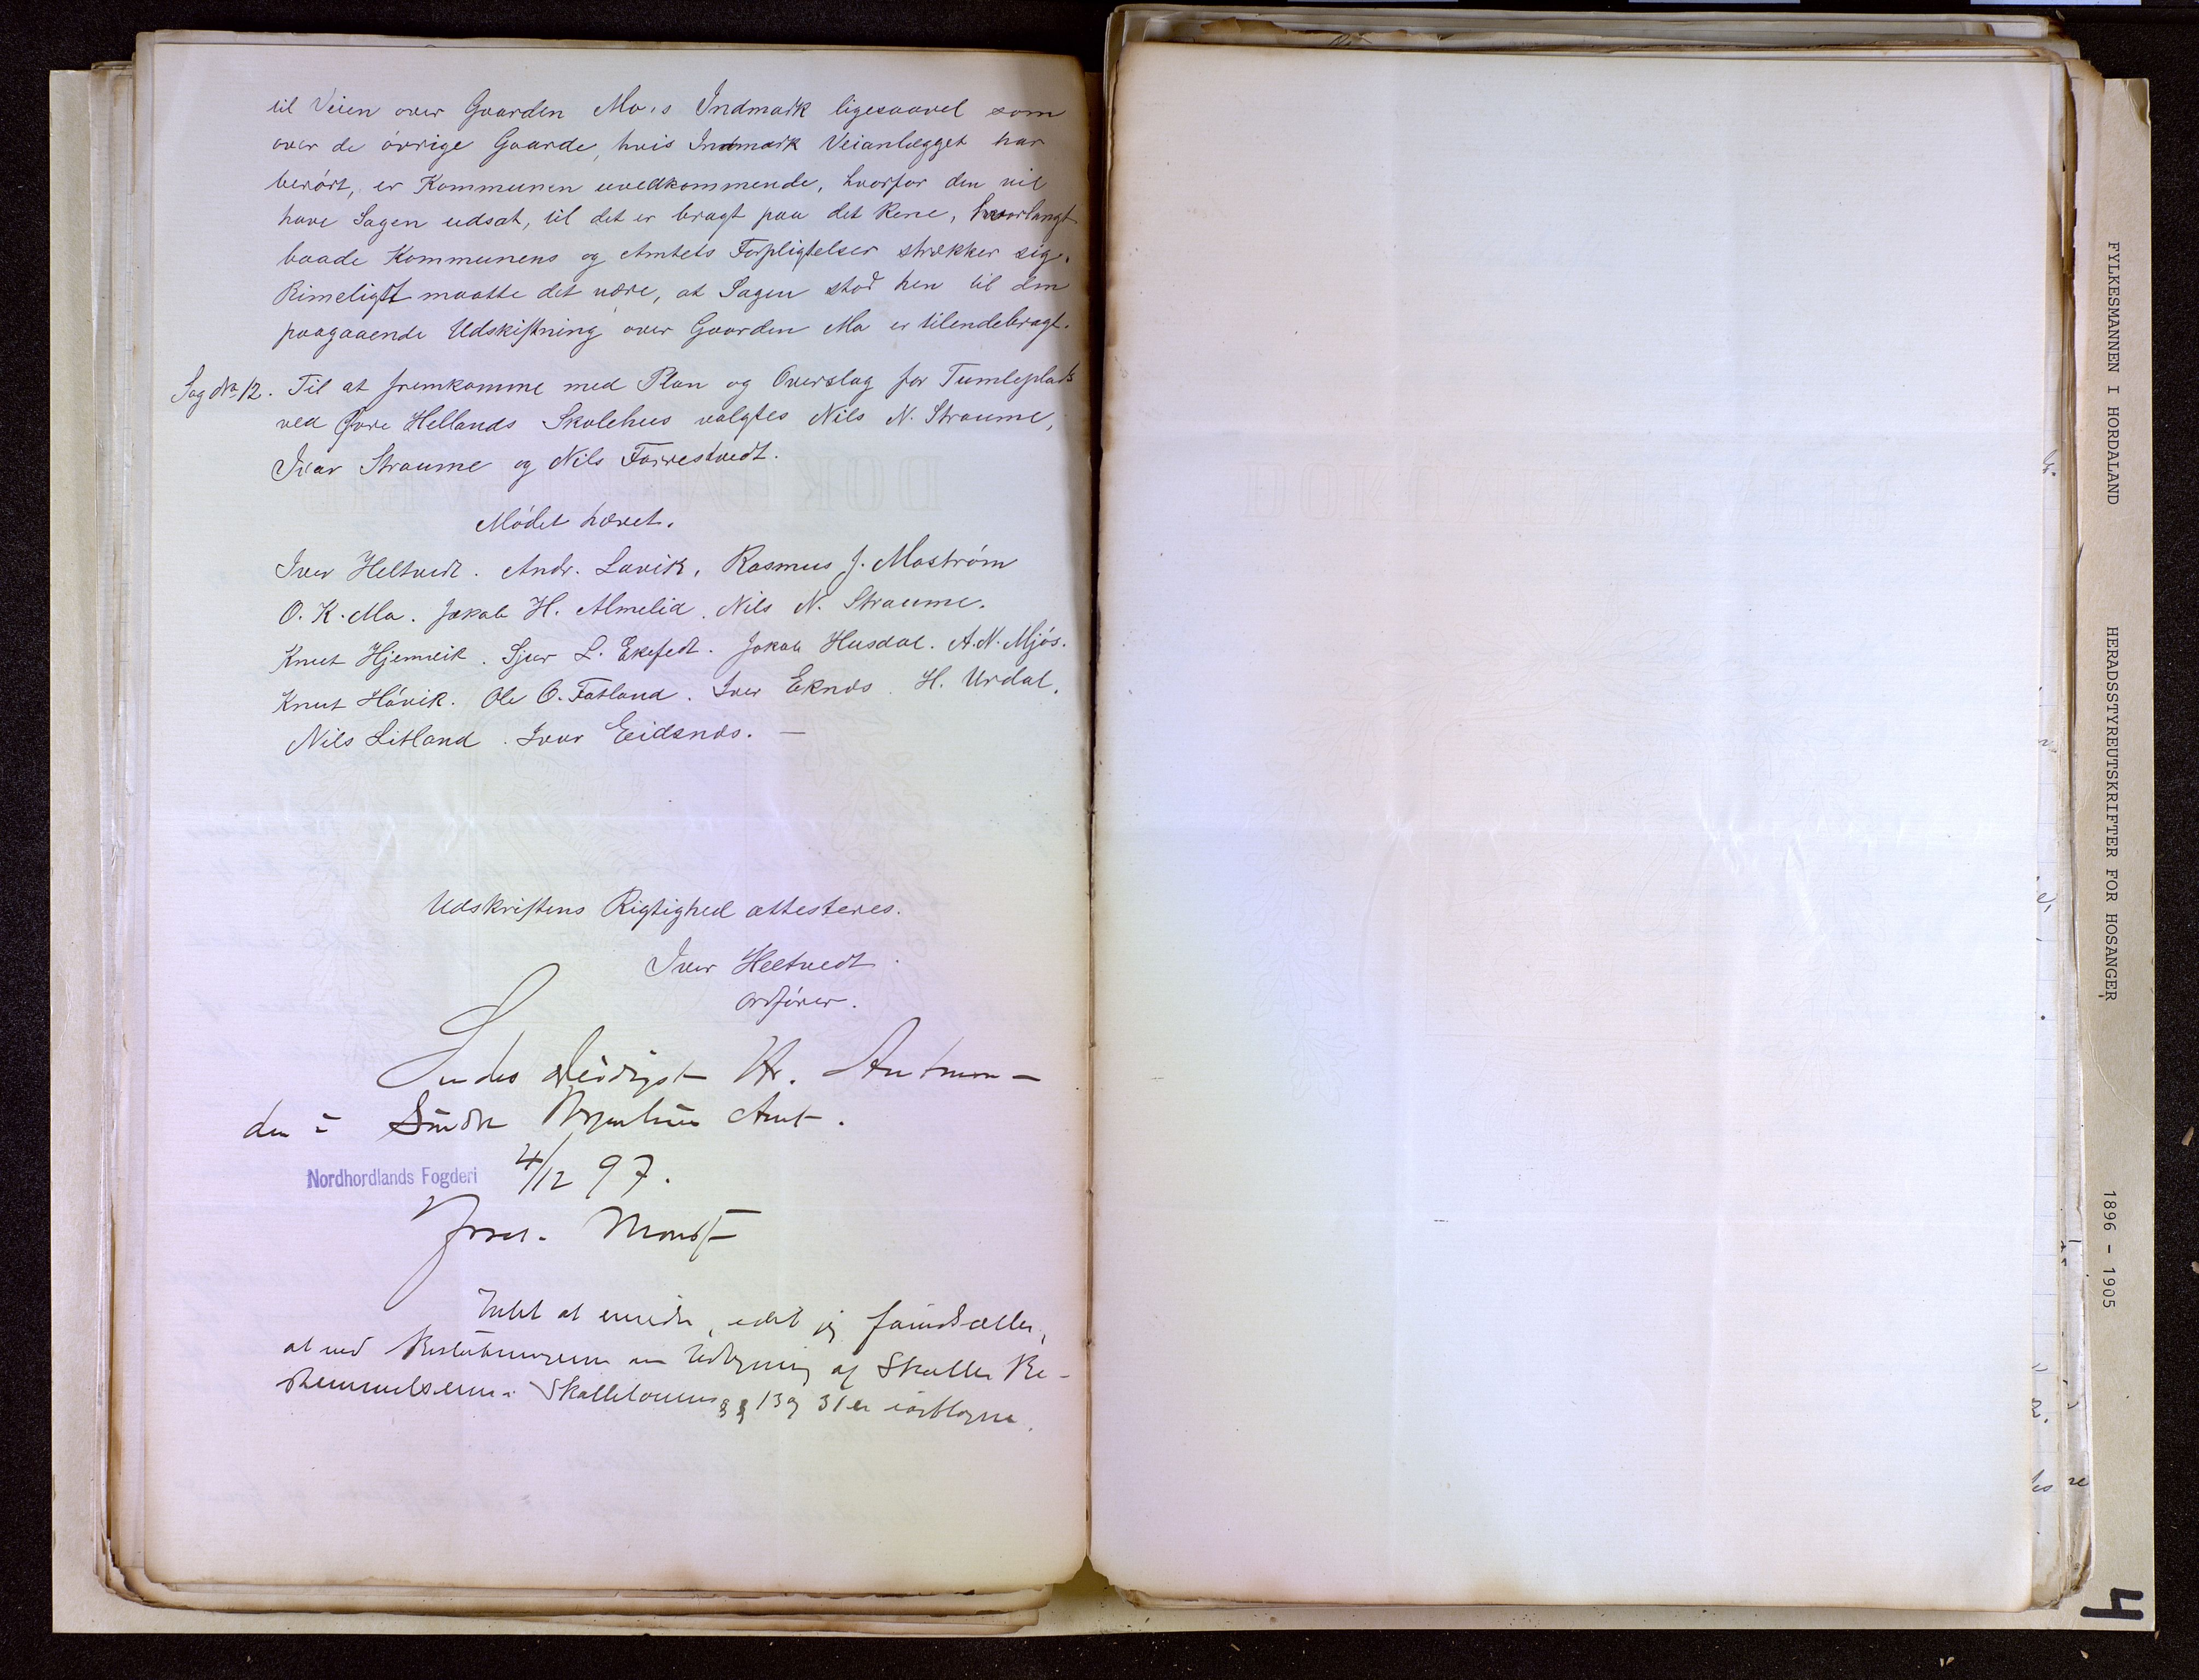 til Veien over Gaarden Mo's Indmark ligesaavel som
over de övrige Gaarde, hvis Indmark Veianlægget har
berört, er Kommunen uvedkommende, hvorfor den vil
have Sagen udsat, til det er bragt paa det Rene, hvorlangt
baade Kommunens og Amtets Forpligtelser strækker sig.
Rimeligst maatte det være, at Sagen stod hen til den
paagaaende Udskiftning over Gaarden Mo er tilendebragt.
Sag No 12. Til at fremkomme med Plan og Overslag for Tumleplads
ved Övre Hellands Skolehus valgtes Nils N. Straume,
Ivar Straume og Nils Farrestvedt.
Mödet hævet.
Iver Heltvedt. Andr. Lavik, Rasmus J. Moström
O. K. Mo. Jakob H. Almelid. Nils N. Straume.
Knut Hjemvik. Sjur L. Ekefedt. Jakob Husdal. A. N. Mjös.
Knut Hövik. Ole O. Fatland. Iver Eknes. H. Urdal.
Nils Litland. Ivar Eidsnes. —
Udskriftens Rigtighed attesteres.
Iver Heltvedt.
ordförer.
Sendes ærbödigst Hr. Amtman-
den i Söndre Bergenhus Amt.
Nordhordlands Fogderi 4/12 97.
Intet at erindre, idet jeg forudsætter,
at ved Beslutningerne om Udligning af Skatter Be-
stemmelserne i Skattelovens §§ 13 og 31 er iagttagne.
FYLKESMANNEN I HORDALAND
HERADSSTYREUTSKRIFTER FOR HOSANGER
1896 - 1905
4